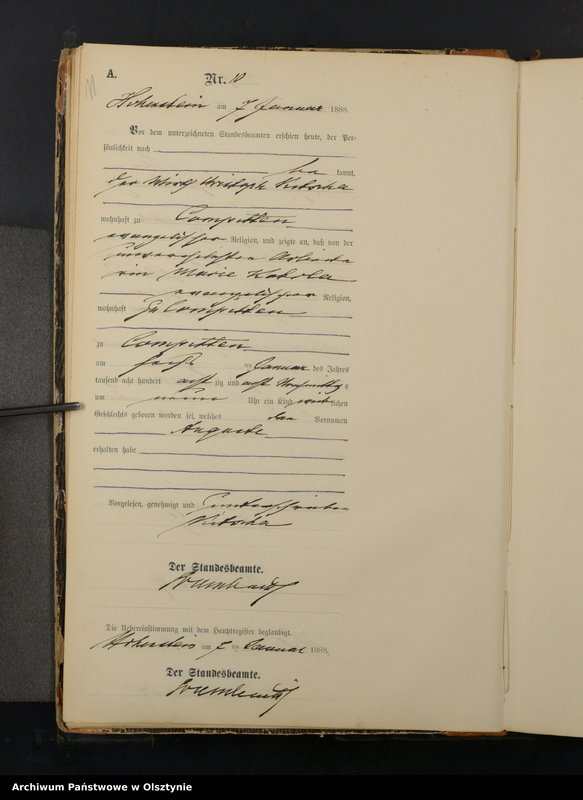 A.
Nr. 10
Hohenstein am 7 Januar 1888.
Vor dem unterzeichneten Standesbeamten erschien heute, der Per-
sönlichkeit nach
be kannt,
der Wirth Christoph
wohnhaft zu Compitten
evangelischer Religion, und zeigte an, daß von der
unverehelichten Arbeite
rin Marie
evangelischer Religion,
wohnhaft zu Compitten
zu Compitten
am ten Januar des Jahres
tausend acht hundert acht zig und acht Vormittags
um neun Uhr ein Kind weib lichen
Geschlechts geboren worden sei, welches den Vornamen
Auguste
erhalten habe
Vorgelesen, genehmigt und unterschrieben
Der Standesbeamte.
Die Uebereinstimmung mit dem Hauptregister beglaubigt.
Hohenstein am 7 ten Januar 1888.
Der Standesbeamte.
Archiwum Państwowe w Olsztynie